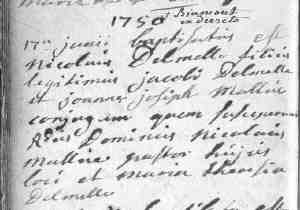 1750 Biamont
in decreto
17a junii baptisatus est
Nicolaus Delmelle filius
legitimus jacobi Delmelle
et joanna joseph Mathieu
conjugum quem susceperunt
Dominus Nicolaus
pastor hujus
loci et maria theresia
Delmelle